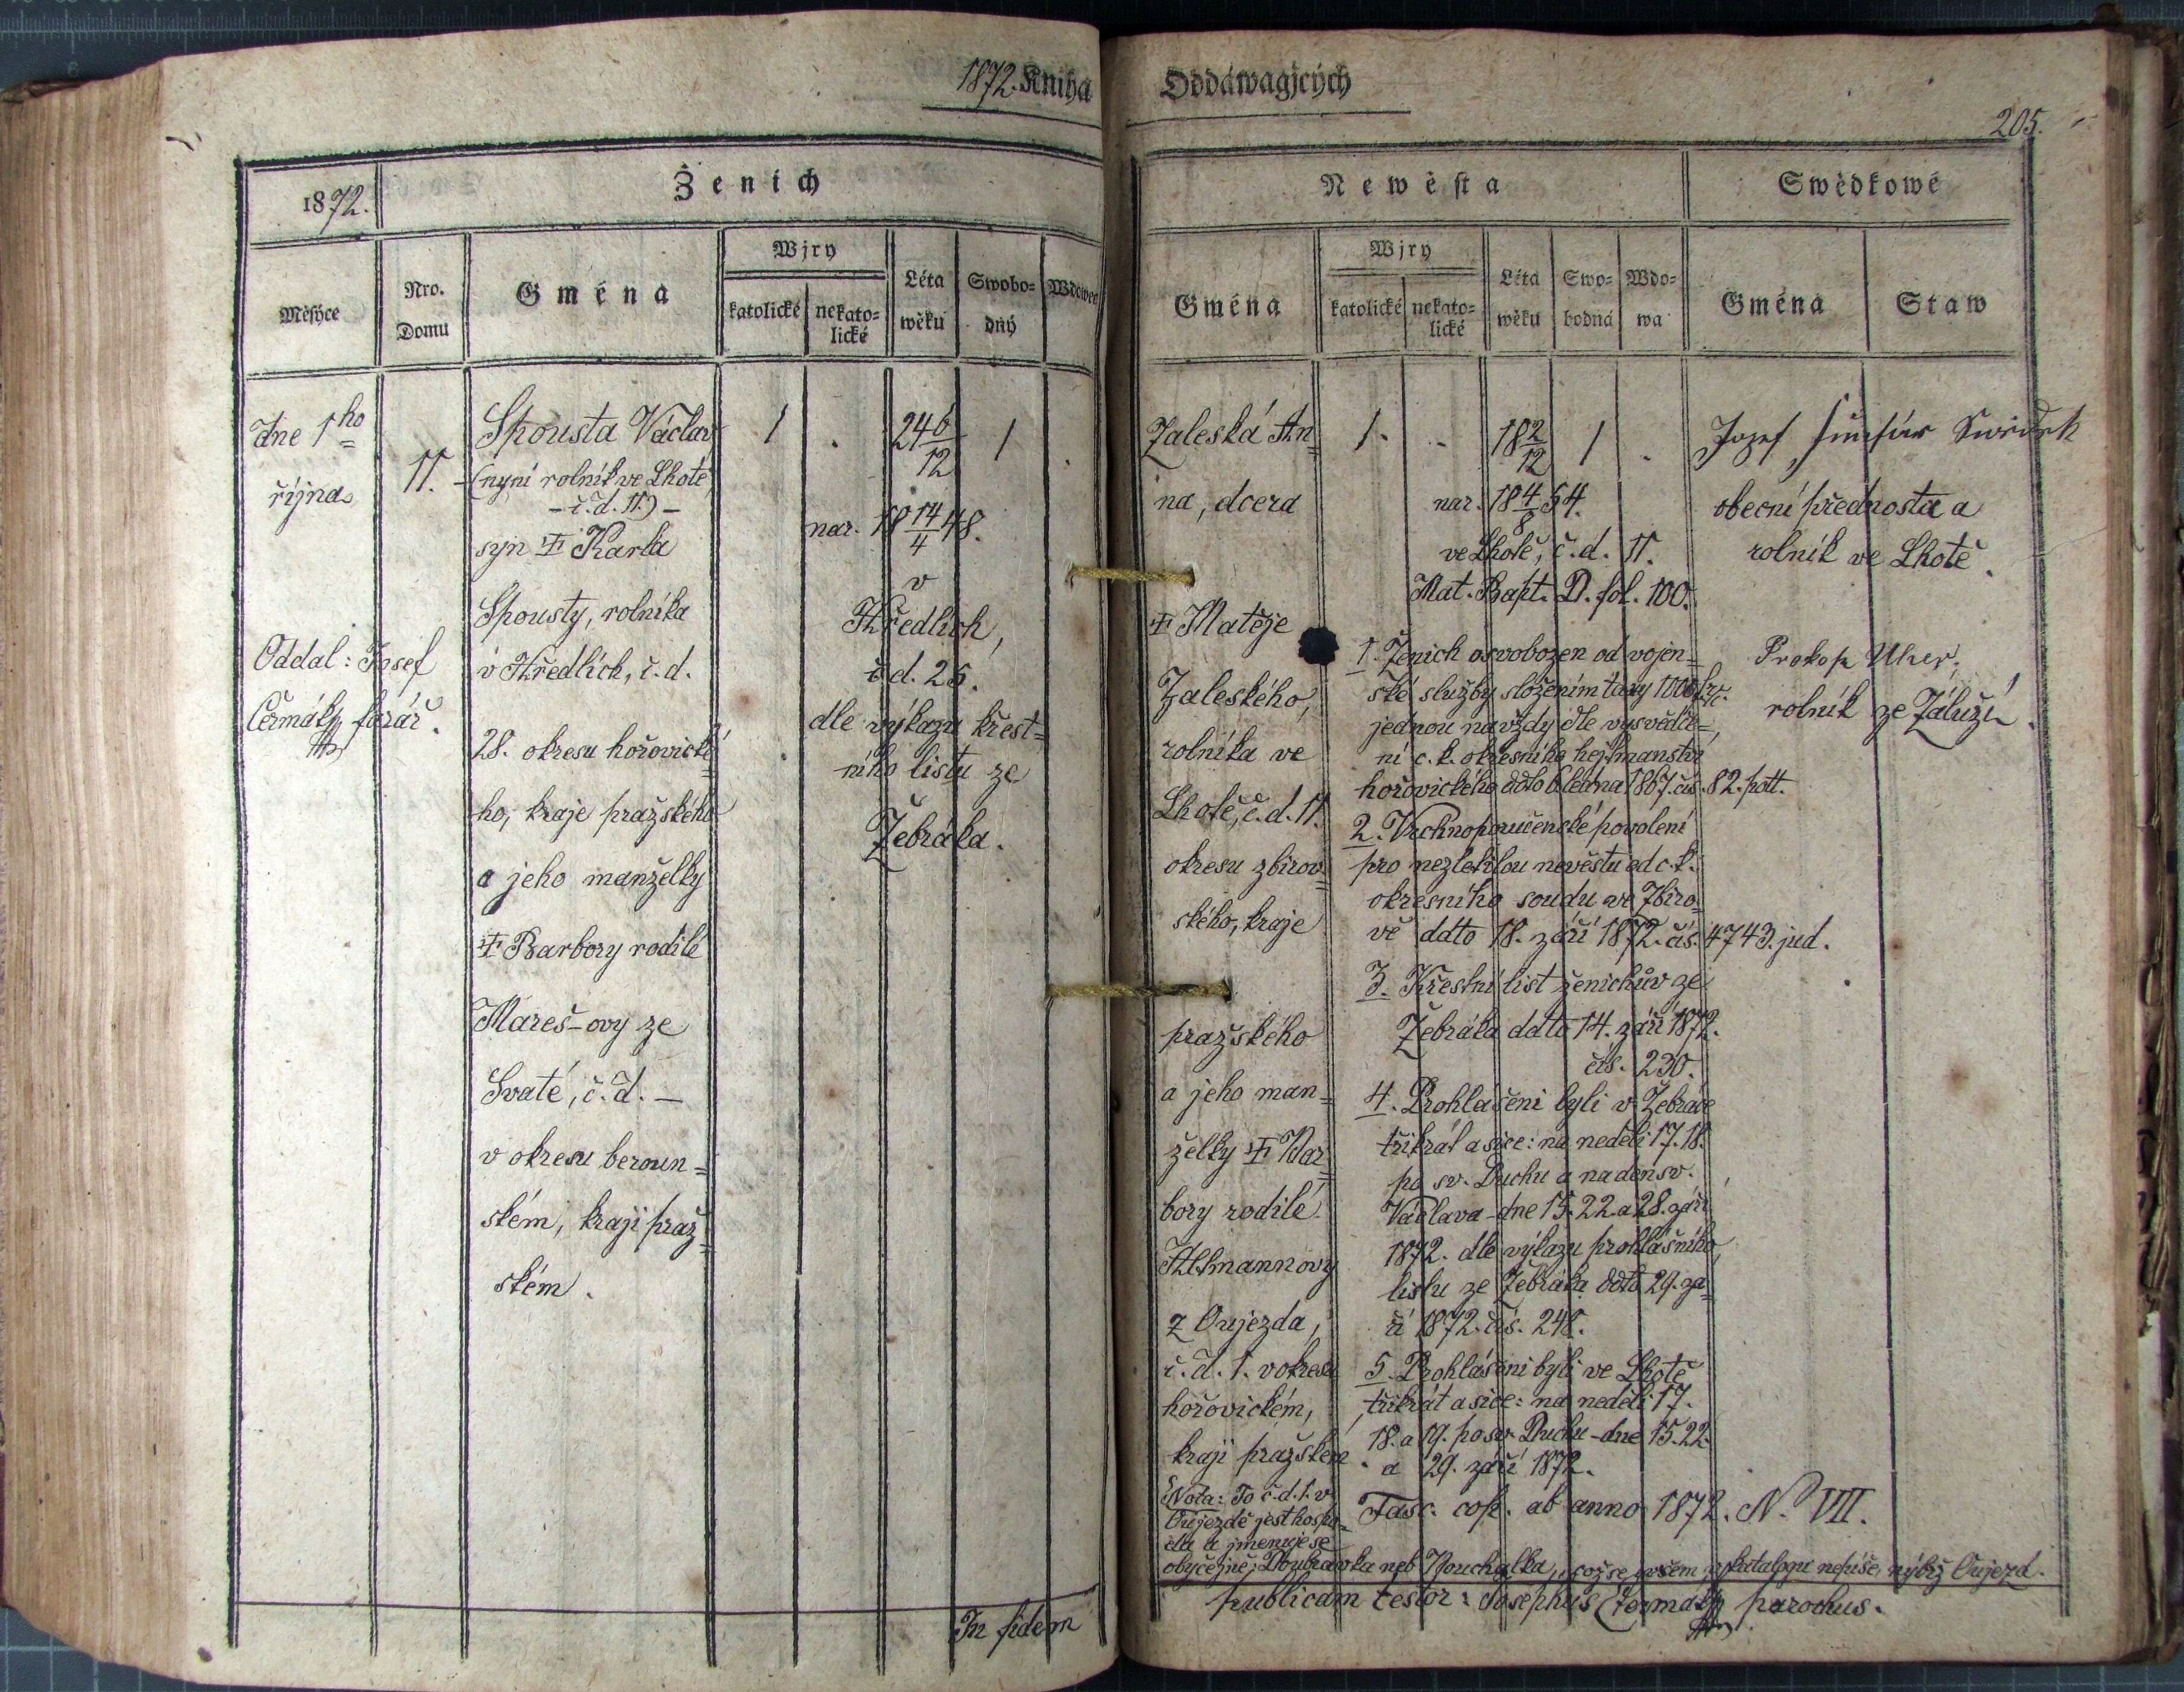 1872. Kniha
Oddáwagjcých
205.
1872.
Ženich
Měsýce
Nro. Domu
Gména
Wjry
katolické
nekato=
lické
Léta
wěku
Swobo=
dný
Wdowec
Newěsta
Swědkowé
Gména
Wjry
katolické
nekato=
lické
Léta
wěku
Swo=
bodná
Wdo=
wa
Gména
Staw
dne 1ho
října
11.
Oddal: Josef
Čermák, farář.
Spousta Václav
(nyní rolník ve Lhotě,
- č. d. 11.) -
syn ‡ Karla
Spousty, rolníka
v Hředlích, č. d.
28. okresu hořovické=
ho, kraje pražského
a jeho manželky
‡ Barbory rodilé
Mareš-ovy ze
Svaté, č. d. —
v okresu beroun=
ském, kraji praž=
ském.
1 . 24 6/12 1 .
nar. 18 14/4 48.
v
Hředlích,
č. d. 28.
dle výkazu křest=
ního listu ze
Žebráka.
Zaleská An=
na, dcera
‡ Matěje
Zaleského,
rolníka ve
Lhotě, č. d. 11.
okresu zbirov=
ského, kraje
pražského
a jeho man=
želky ‡ Bar=
bory rodilé
z Oujezda,
č. d. 1. v okresu
hořovickém,
kraji pražském.
Nota: To č. d. 1. v
Oujezdě jest hospo=
da a jmenuje se
obyčejně: Doubravka neb Pouchalka, což se ovšem v katalogu nepíše, nýbrž Oujezd.
1. .. 18 2/12 1 .
nar. 18 4/8 54.
ve Lhotě, č. d. 11.
Mat. Bapt. D. fol. 100.
1. Ženich osvobozen od vojen=
ské služby složením taxy 1000 fr.
jednou navždy dle vysvědče=
ní c. k. okresního hejtmanství
hořovického ddto 6 ledna 1867. čís. 82. pol.
2. Vrchnoporučenské povolení
pro nezletilou nevěstu od c. k.
okresního soudu ve Zbiro=
vě ddto 18. září 1872. čís. 4743. jud.
3. Křestní list ženichův ze
Žebráka ddto 14. září 1872.
čís. 230.
4. Prohlášeni byli v Žebráce
třikrát a sice: na neděli 17. 18.
po sv. Duchu a na den sv.
Václava - dne 15. 22. a 28. září
1872. dle výkazu prohlášního
listu ze Žebráka ddto 29. zá=
ří 1872. čís. 248.
5. Prohlášeni byli ve Lhotě
třikrát a sice: na neděli 17.
18. a 19. po sv. Duchu - dne 15. 22.
a 29. září 1872.
Fasc. cop. ab anno 1872. No VII.
Jozef Svědek
obecní přednosta a
rolník ve Lhotě.
Prokop Uher,
rolník ze Záluží.
In fidem
publicam testor: Josephus Čermák parochus.